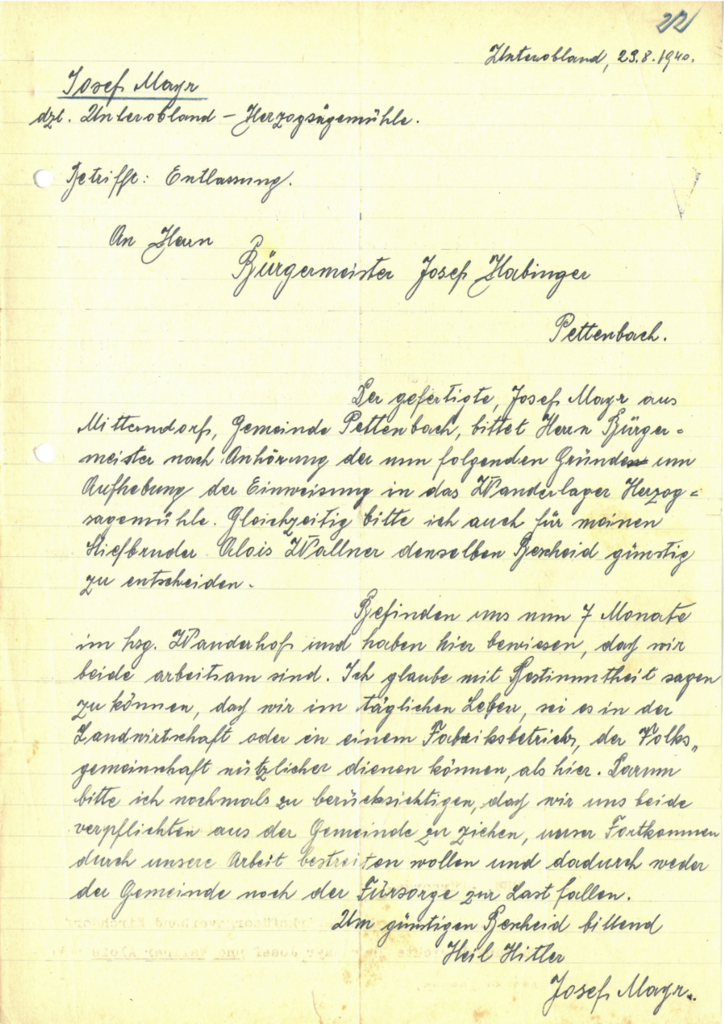 22
Unterobland, 23.8.1940.
Josef Mayr
dzt. Unterobland - Herzogsägemühle.
Betrifft: Entlassung.
An Herrn
Bürgermeister Josef Habinger
Pettenbach.
Der gefertigte, Josef Mayr aus
Mitterndorf, Gemeinde Pettenbach, bittet Herrn Bürger=
meister nach Anhörung der nun folgenden Gründe um
Aufhebung der Einweisung in das Wanderlager Herzog=
sagemühle. Gleichzeitig bitte ich auch für meinen
Stiefbruder Alois Wallner denselben Bescheid günstig
zu entscheiden.
Befinden uns nun 7 Monate
im hsg. Wanderhof und haben hier bewiesen, daß wir
beide arbeitsam sind. Ich glaube mit Bestimmtheit sagen
zu können, daß wir im täglichen Leben, sei es in der
Landwirtschaft oder in einem Fabriksbetrieb, der Volks„
gemeinschaft nützlicher dienen können, als hier. Darum
bitte ich nochmals zu berücksichtigen, daß wir uns beide
verpflichten aus der Gemeinde zu ziehen, unser Fortkommen
durch unsere Arbeit bestreiten wollen und dadurch weder
der Gemeinde noch der Fürsorge zur Last fallen.
Um günstigen Bescheid bittend
Heil Hitler
Josef Mayr.